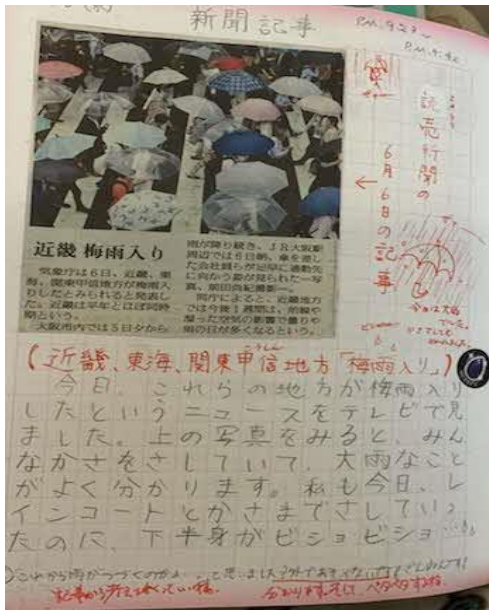 新聞記事
P.M. 9:23〜
P.M. 9:40
読売新聞の
6月6日の記事
近畿 梅雨入り
気象庁は6日、近畿、東
海、関東甲信地方が梅雨入
りしたとみられると発表し
た。近畿は平年とほぼ同時
期という。
大阪市内では5日夕から
雨が降り続き、JR大阪駅
周辺では6日朝、傘を差し
た会社員らが足早に通勤先
に向かう姿が見られた=写
真、前田尚紀撮影=。
同庁によると、近畿地方
では今後1週間は、前線や
湿った空気の影響で曇りや
雨の日が多くなるという。
(近畿、東海、関東甲信地方「梅雨入り」)
今日、これらの地方が梅雨入り
したというニュースをテレビで見
ました。上の写真をみると、みん
なかさをさしていて、大雨なこと
がよく分かります。私も今日、レ
インコートとかさまでさしていっ
たのに、下半身がビショビショ…
これから雨がつづくのかぁ…と思いました